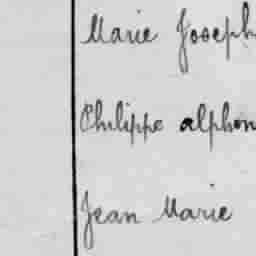 Marie Joseph
Philippe alphon
Jean Marie